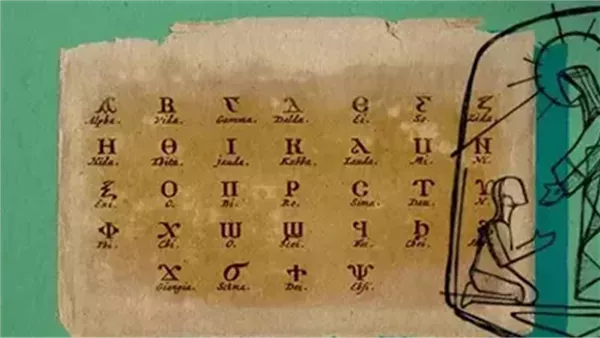 Ⲁ Ⲃ Ⲅ Ⲇ Ⲉ Ⲋ Ⲍ
Alpha. Vida. Gamma. Dalda. Ei. So. Zida.
Ⲏ Ⲑ Ⲓ Ⲕ Ⲗ Ⲙ Ⲛ
Hida. Thita. Jauda. Kabba. Lauda. Mi. Ni.
Ⲝ Ⲟ Ⲡ Ⲣ Ⲥ Ⲧ Ⲩ
Exi. O. Bi. Ro. Sima. Dau.
Ⲫ Ⲭ Ⲱ Ϣ Ϥ Ϧ
Phi. Chi. O. Scei. Fei. Chei.
Ϫ Ϭ Ϯ Ⲯ
Giangia. Scima. Dei. Ebsi.